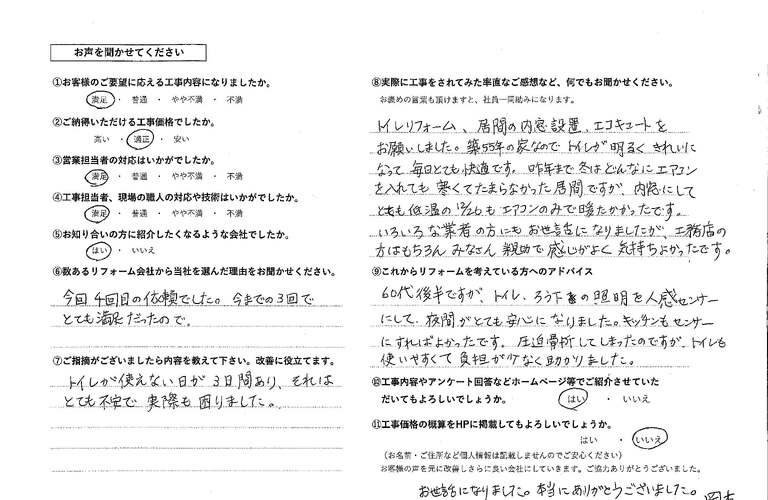 お声を聞かせてください
①お客様のご要望に応える工事内容になりましたか。
満足 ・ 普通 ・ やや不満 ・ 不満
②ご納得いただける工事価格でしたか。
高い ・ 適正 ・ 安い
③営業担当者の対応はいかがでしたか。
満足 ・ 普通 ・ やや不満 ・ 不満
④工事担当者、現場の職人の対応や技術はいかがでしたか。
満足 ・ 普通 ・ やや不満 ・ 不満
⑤お知り合いの方に紹介したくなるような会社でしたか。
はい ・ いいえ
⑥数あるリフォーム会社から当社を選んだ理由をお聞かせください。
今回4回目の依頼でした。今までの3回で
とても満足だったので。
⑦ご指摘がございましたら内容を教えて下さい。改善に役立てます。
トイレが使えない日が3日間あり、それは
とても不安で実際も困りました。
⑧実際に工事をされてみた率直なご感想など、何でもお聞かせください。
お褒めの言葉も頂けますと、社員一同励みになります。
トイレリフォーム、居間の内窓設置、エコキュートを
お願いしました。築55年の家なのでトイレが明るくきれいに
なって毎日とても快適です。昨年まで冬はどんなにエアコン
を入れても寒くてたまらなかった居間ですが、内窓にして
とても低温の12/26もエアコンのみで暖たかかったです。
いろいろな業者の方にもお世話になりましたが、工務店の
方はもちろんみなさん親切で感じがよく気持ちよかったです。
⑨これからリフォームを考えている方へのアドバイス
60代後半ですが、トイレ、ろう下等の照明を人感センサー
にして、夜間がとても安心になりました。キッチンもセンサー
にすればよかったです。圧迫骨折してしまったのですが、トイレも
使いやすくて負担が少なく助かりました。
⑩工事内容やアンケート回答などホームページ等でご紹介させていた
だいてもよろしいでしょうか。 はい ・ いいえ
⑪工事価格の概算をHPに掲載してもよろしいでしょうか。
はい ・ いいえ
(お名前・ご住所など個人情報は記載しませんのでご安心ください)
お客様の声を元に改善しさらに良い会社にしていきます。ご協力ありがとうございました。
お世話になりました。本当にありがとうございました。